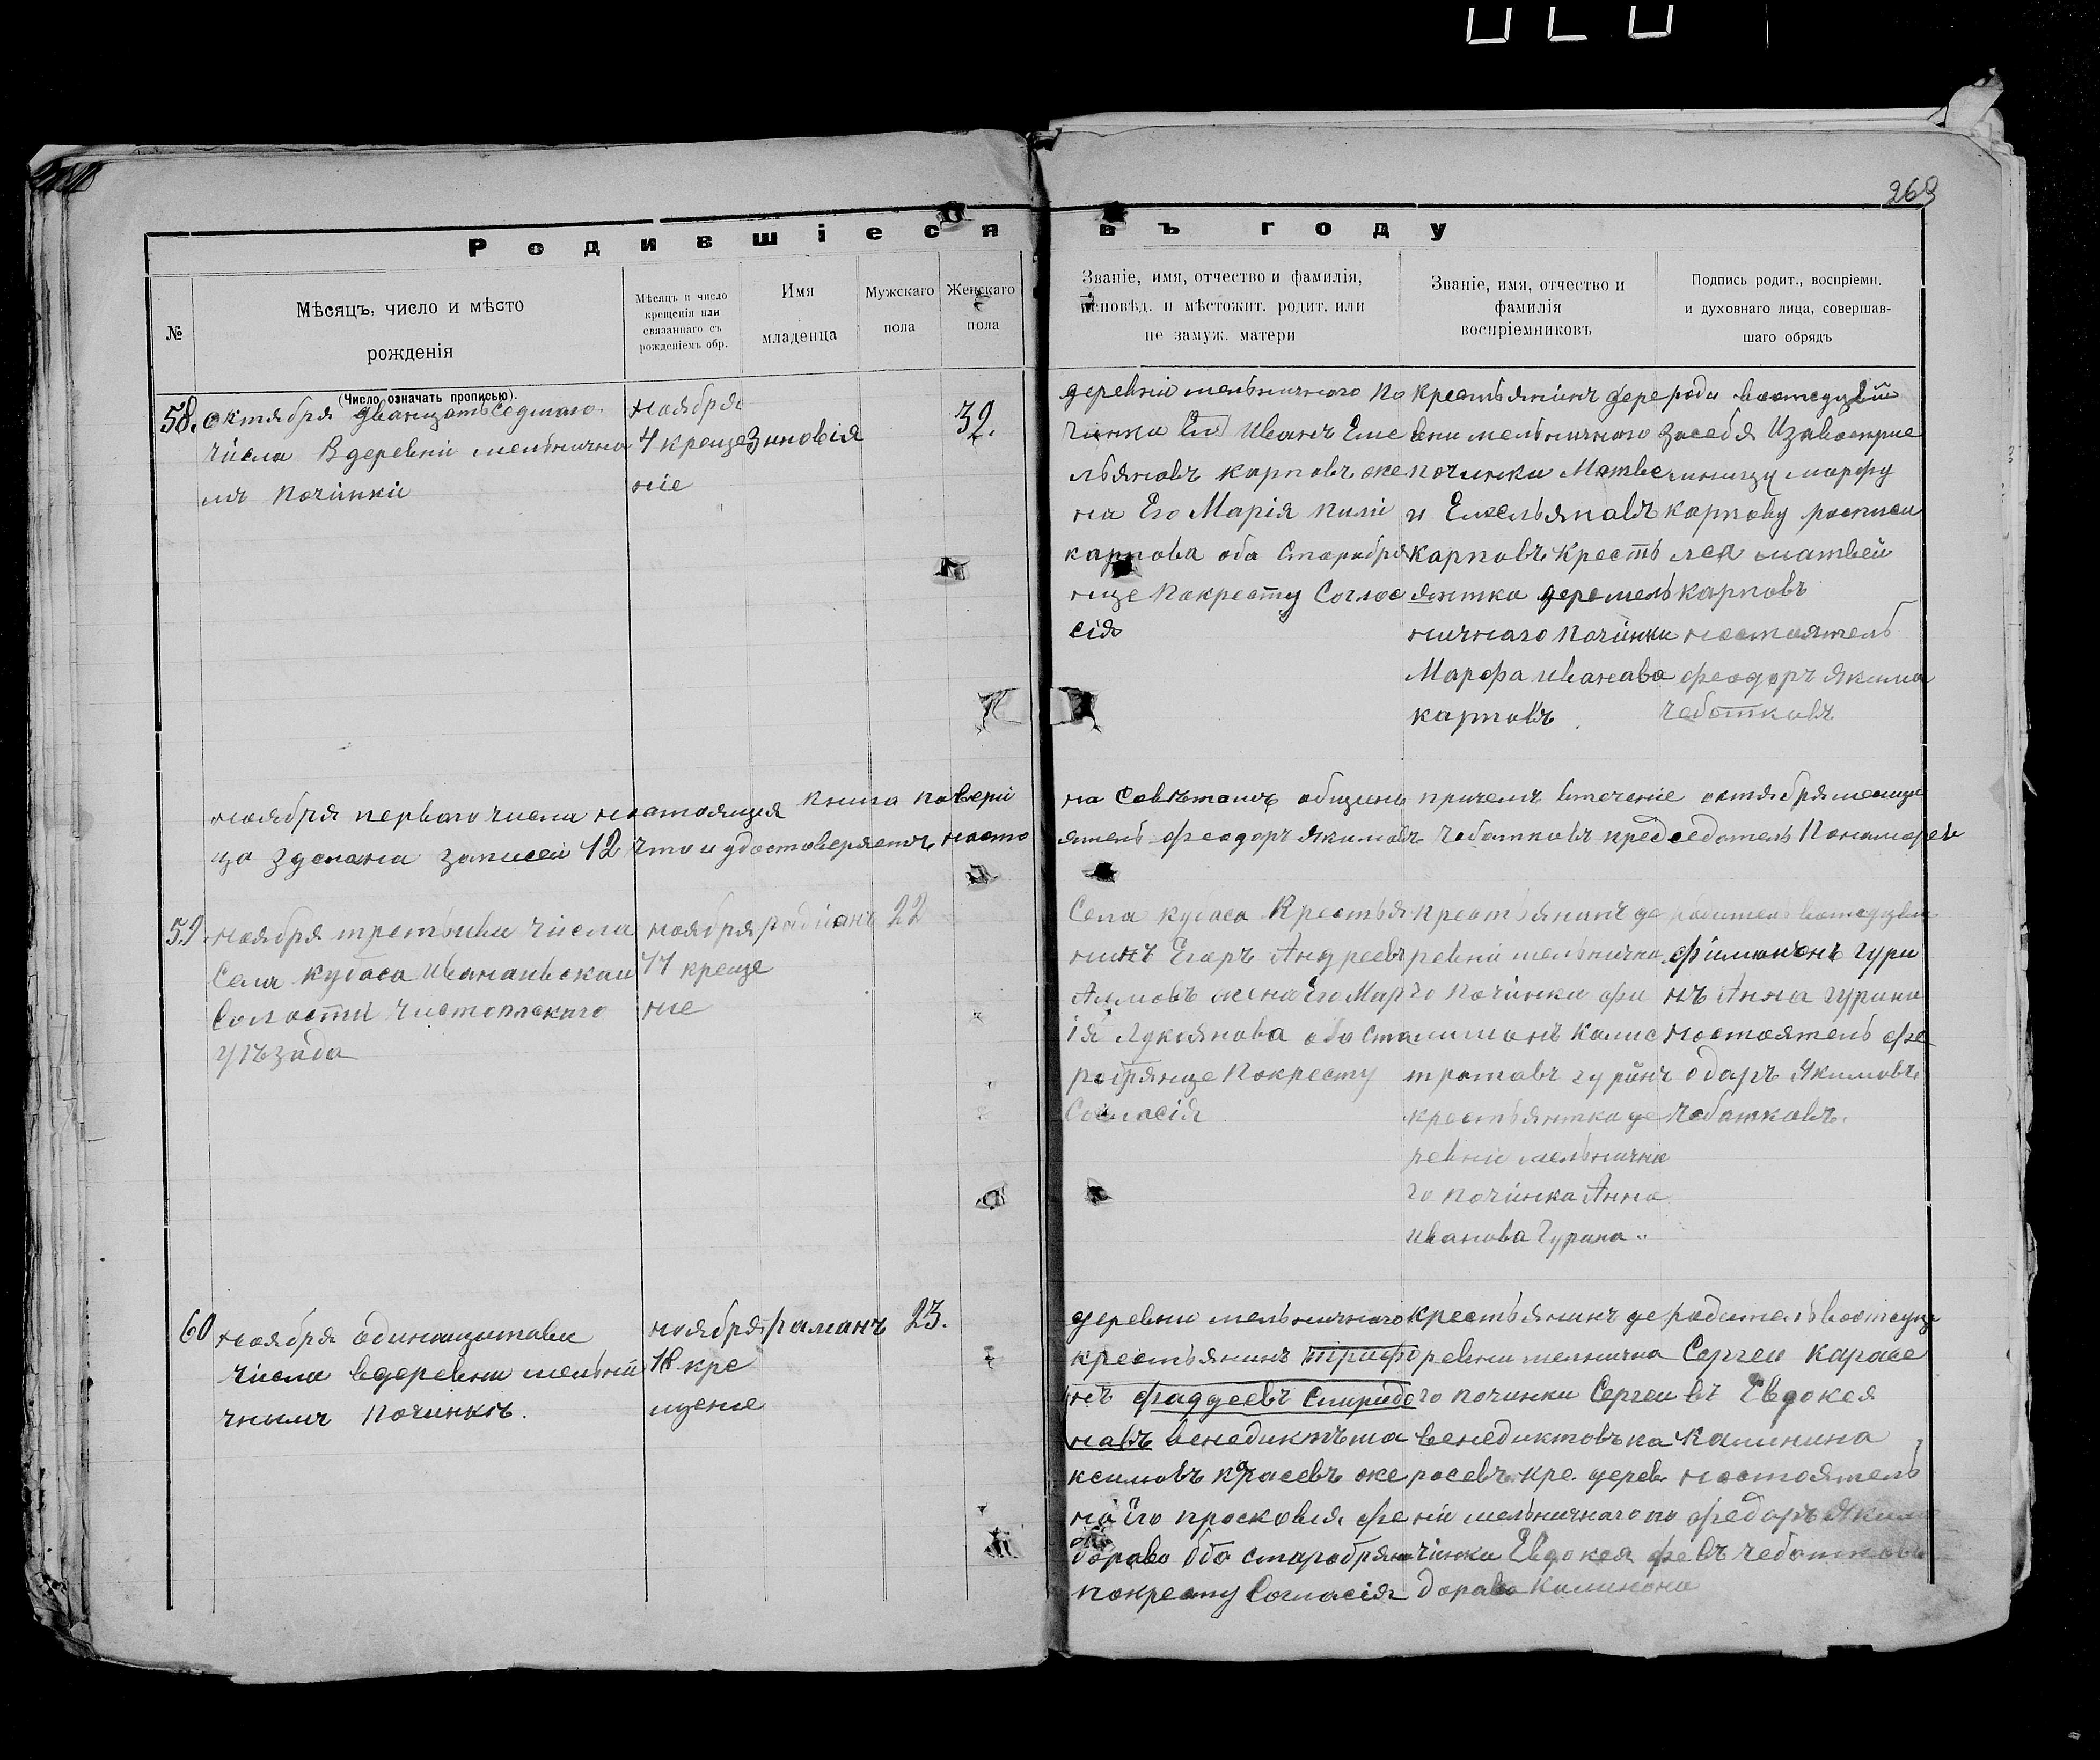 269
Родившіеся въ году
№
Мѣсяцъ, число и мѣсто
рожденія
(Число означать прописью).
Мѣсяцъ и число
крещенія или
связаннаго съ
рожденіемъ обр.
Имя
младенца
Мужскаго
пола
Женскаго
пола
Званіе, имя, отчество и фамилія,
исповѣд. и мѣстожит. родит. или
не замуж. матери
Званіе, имя, отчество и
фамилія
воспріемниковъ
Подпись родит., воспріемн.
и духовнаго лица, совершав-
шаго обрядъ
58.
октября дванцать седмаго
числа В деревни мельнично
мъ починки
ноября
4 креще
ніе
Зиновія
32.
деревни мельничного по
чинка Иванъ Еме
льяновъ карповъ же
на Его Марія
карпова оба Старобря
нце Покресту Соглос
сія
Крестьянинъ дере
вни мельничного
починка Матве
и Емельяновъ
карповъ Кресть
янтка дер мель
ничнаго починки
Марфа иванава
карповъ
за себя И за восприе
мницу марфу
карпову росписа
лся матвей
карповъ
настоятель
феодоръ якима
чеботковъ
ноября первого числа настоящия книга повери
на Совѣтомъ общины причемъ втечение октября месяца
ца зделана записей 12 что и удостоверяетъ насто
ятель феодоръ якимовъ чеботковъ председатель Понаморев
59
ноября третьива числа
Села кубаса Иванаивскаи
Волости чистополскаго
уѣзда
ноября
11 креще
ние
радіанъ
22
Села кубаса Крестья
нинъ Егаръ Андреевъ
Акимовъ жена Его Мар
ія Лукоянова оба Ста
робрянце Покресту
Согласія
крестьянинъ де
ревни мельнично
го починки фи
лимонъ калис
тратавъ гуринъ
крестьянтка де
ревни мельнична
го починка Анна
иванова Гурина
филимонъ гури
нъ Анна гурина
настоятель фе
одаръ Якимовъ
чеботковъ.
60
ноября одинацатава
числа вдеревни мельни
чнымъ Починкѣ.
ноября
18 кре
щение
раманъ
23.
деревни мельничного
крестьянинъ триф
нъ фаддеевъ Спиридо
навъ венедиктъ ма
ксимовъ карасевъ же
на Его просковья фе
дорова оба старобрянце
покресту Согласія
крестьянинъ де
ревни мелнична
го починки Сергеи
венедиктовъ ка
росевъ кре. дерев
ніи мельничнаго по
чинка Евдокея фе
дорава Калинона
родитель
Сергеи карасе
въ Евдокея
Калинина
настоятель
федаръ Якимо
въ чебатковъ